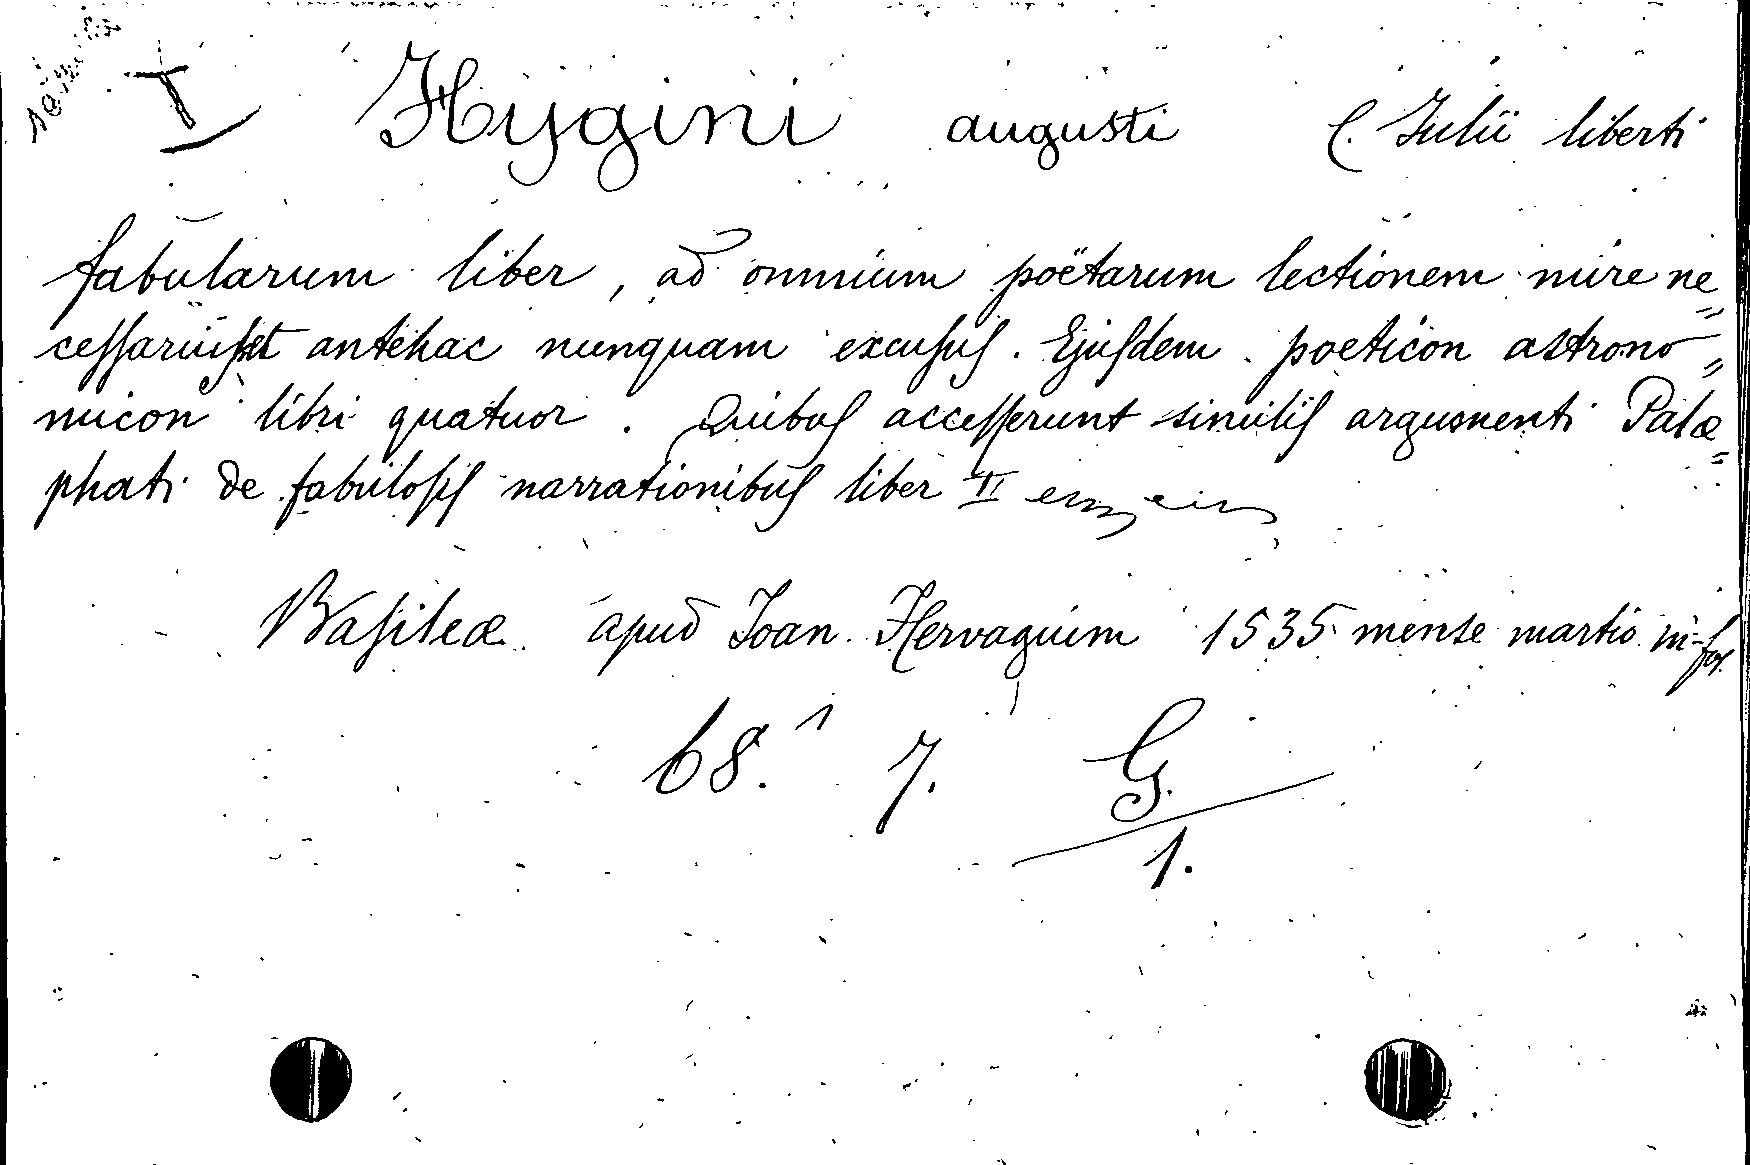 I Hygini augusti C. Julii liberti
fabularum liber, ad omnium poëtarum lectionem mire ne=
cessarius et antehac nunquam excusus. Ejusdem poeticon astrono=
micon libri quatuor. Quibus accesserunt similis argumenti Palæ=
phati de fabulosis narrationibus liber II
Basileæ apud Joan. Hervagium 1535 mense martio in-fol.
68.¹ 7. G.
1.